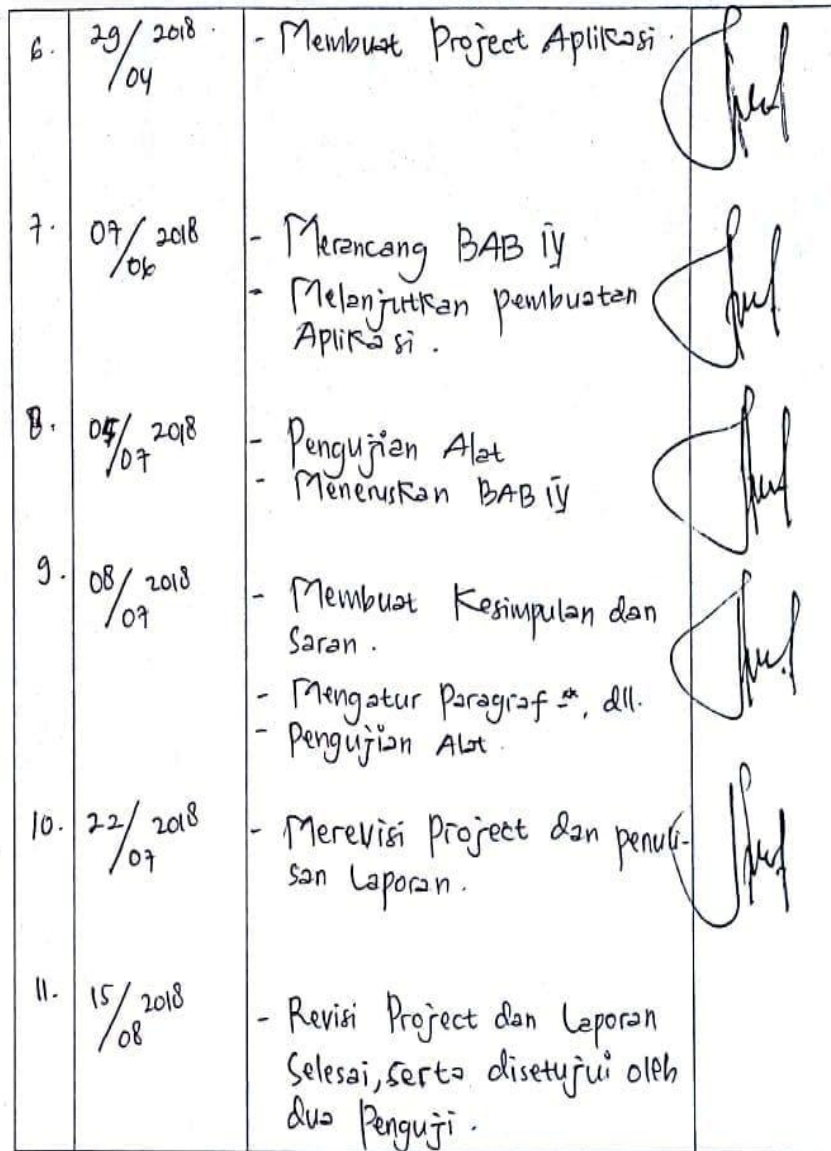 6. 29/04 2018 - Membuat Project Aplikasi.
7. 07/06 2018 - Merancang BAB IV
- Melanjutkan pembuatan
Aplikasi.
8. 07 2018 - Pengujian Alat
- Meneruskan BAB IV
9. 08/07 2018 - Membuat Kesimpulan dan
Saran.
- Mengatur Paragraf, dll.
- Pengujian Alat.
10. 22/07 2018 - Merevisi Project dan penuli-
san Laporan.
11. 15/08 2018 - Revisi Project dan Laporan
Selesai, serta disetujui oleh
dua Penguji.